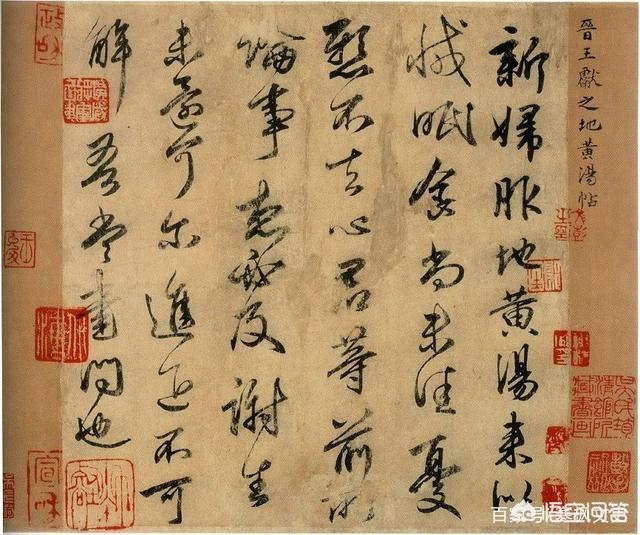 晉王獻之地黄湯帖
新婦服地黄湯來似
減眠食尚未佳憂
懸不去心君等前所
論事想必及謝生
未還可尔進退不可
解吾當書問也
宣和
悟空问答
百家号